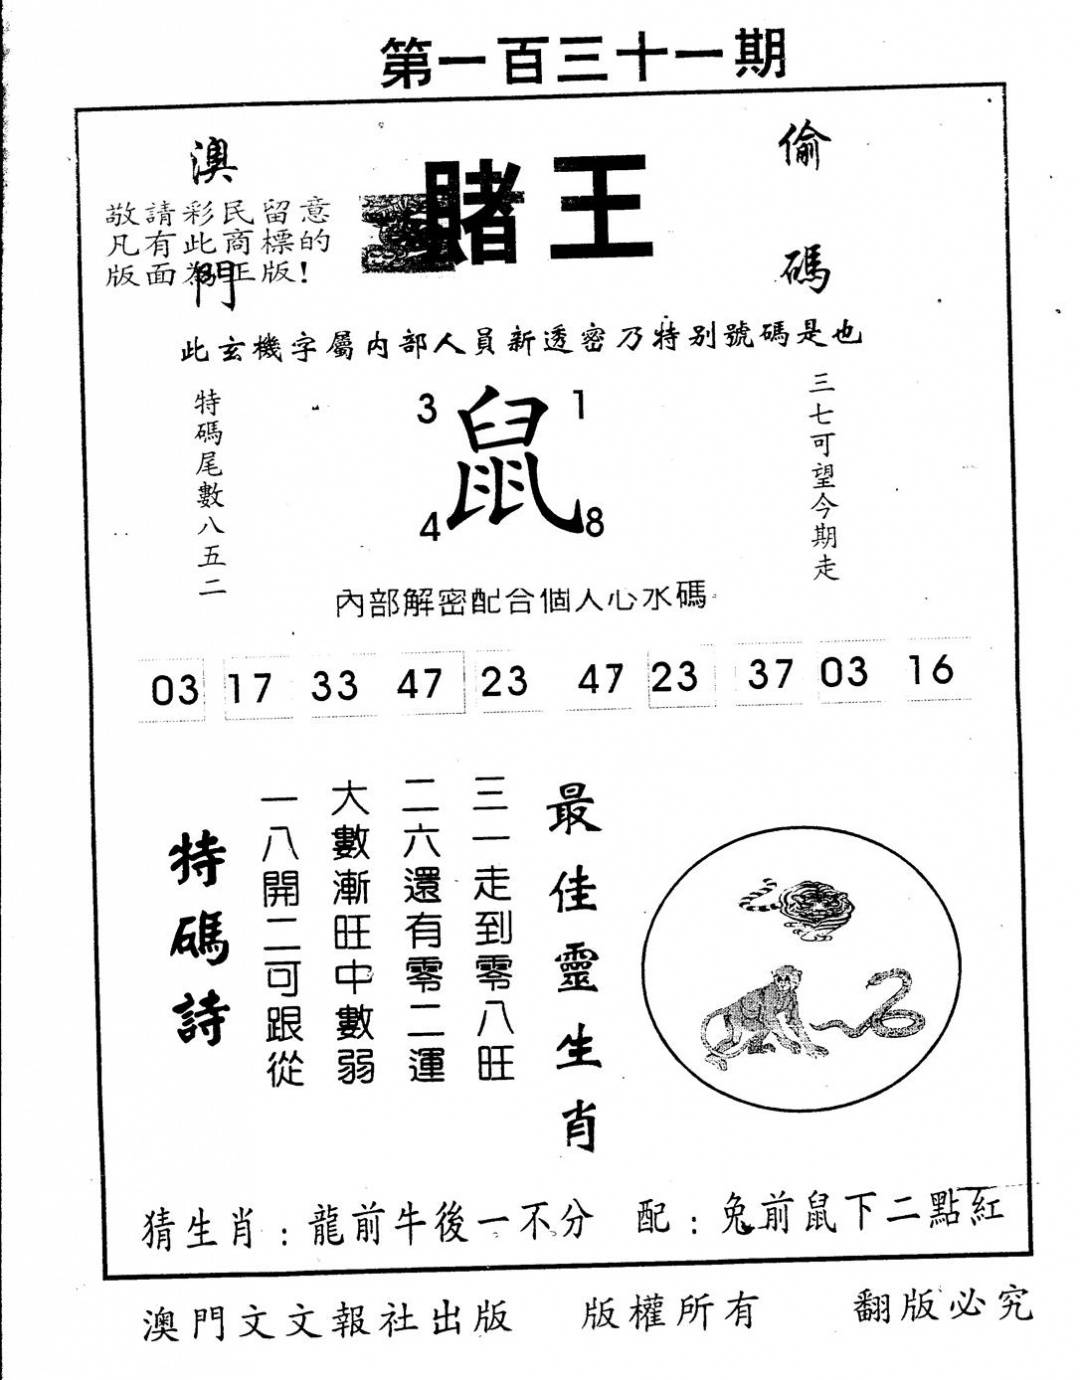 第一百三十一期
澳門
賭王
偷碼
敬請彩民留意
凡有此商標的
版面為正版!
此玄機字屬內部人員新透密乃特別號碼是也
特碼尾數八五二
3 1
鼠
4 8
三七可望今期走
內部解密配合個人心水碼
03 17 33 47 23 47 23 37 03 16
最佳靈生肖
三一走到零八旺
二六還有零二運
大數漸旺中數弱
一八開二可跟從
特碼詩
猜生肖:龍前牛後一不分 配:兔前鼠下二點紅
澳門文文報社出版 版權所有 翻版必究